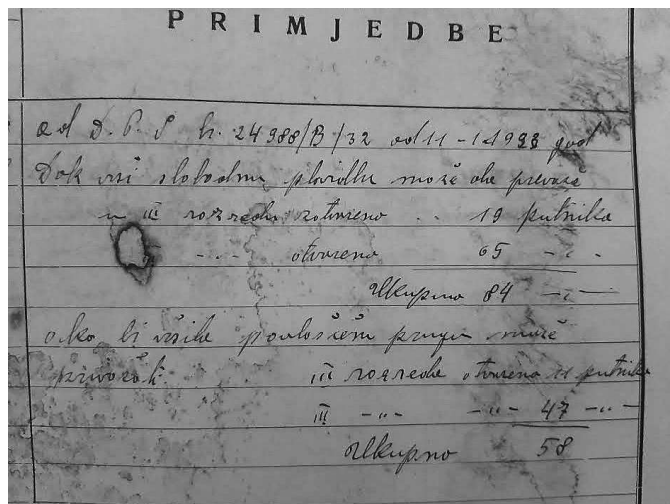 PRIMJEDBE
od D. P. S br. 24988/B/32 od 11-1 1933 god
Dok vrši slobodnu plovidbu može da prevozi
u III razredu zatvoreno .. 19 putnika
-..- otvoreno 65 -..-
Ukupno 84 -..-
ako bi vršila prugu može
prevoziti III razreda otvoreno 11 putnika
III -..- -..- 47 -..-
Ukupno 58